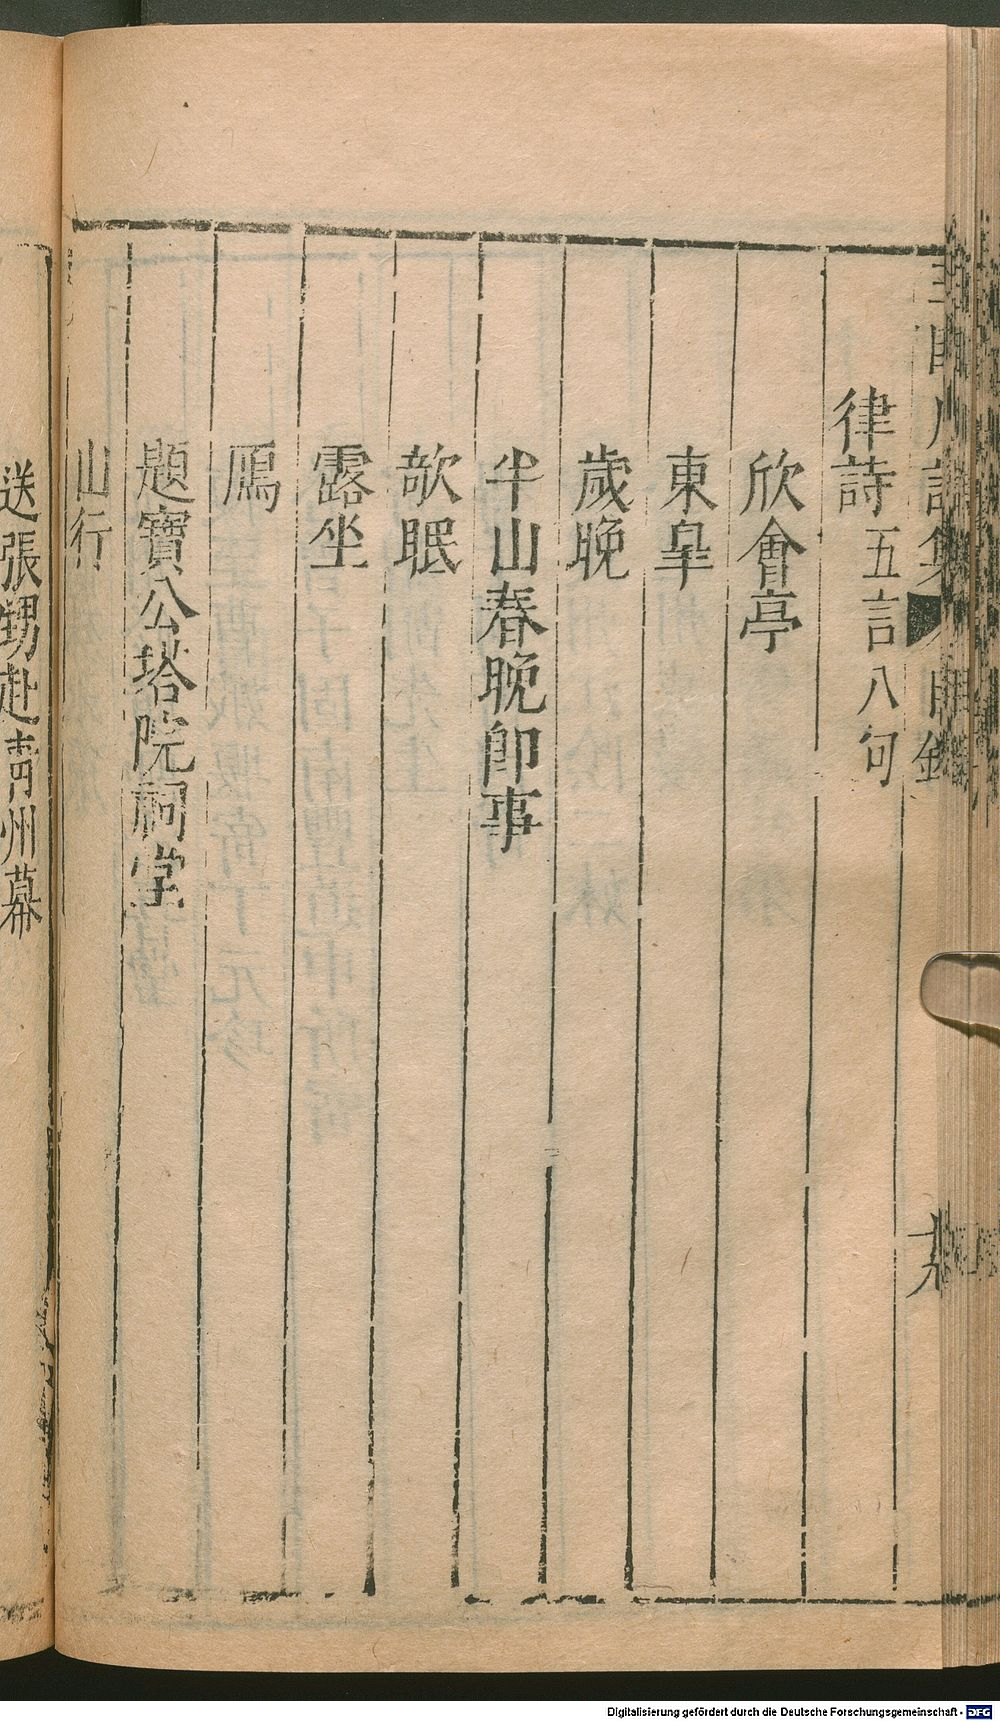 律詩五言八句
欣會亭
東皐
歲晚
半山春晚卽事
欹眠
露坐
鴈
題寶公塔院祠堂
山行
送張甥赴靑州幕
Digitalisierung gefördert durch die Deutsche Forschungsgemeinschaft - DFG